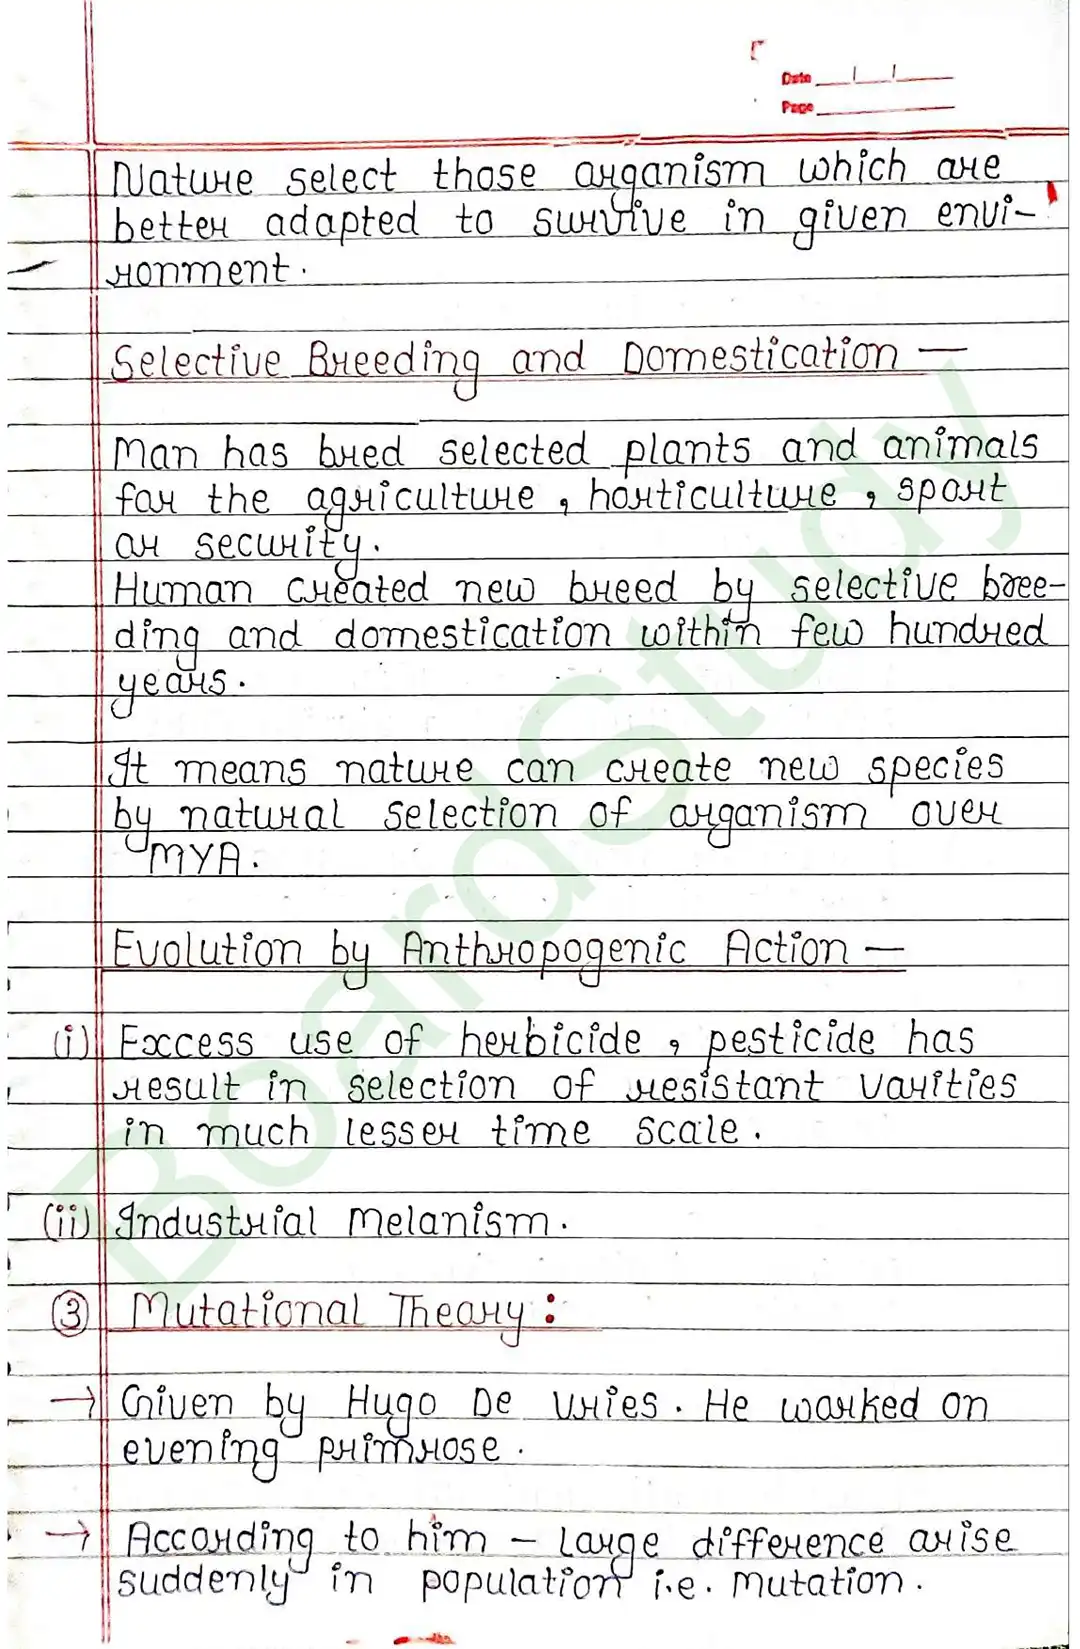 Date
Page
Nature select those organism which are
better adapted to survive in given envi-
ronment.
Selective Breeding and Domestication —
Man has bred selected plants and animals
for the agriculture, horticulture, sport
or security.
Human created new breed by selective bree-
ding and domestication within few hundred
years.
It means nature can create new species
by natural selection of organism over
MYA.
Evolution by Anthropogenic Action —
(i) Excess use of herbicide, pesticide has
result in selection of resistant varities
in much lesser time scale.
(ii) Industrial Melanism.
③ Mutational Theory:
→ Given by Hugo De Vries. He worked on
evening primrose.
→ According to him – Large difference arise
suddenly in population i.e. Mutation.
BoardStudy